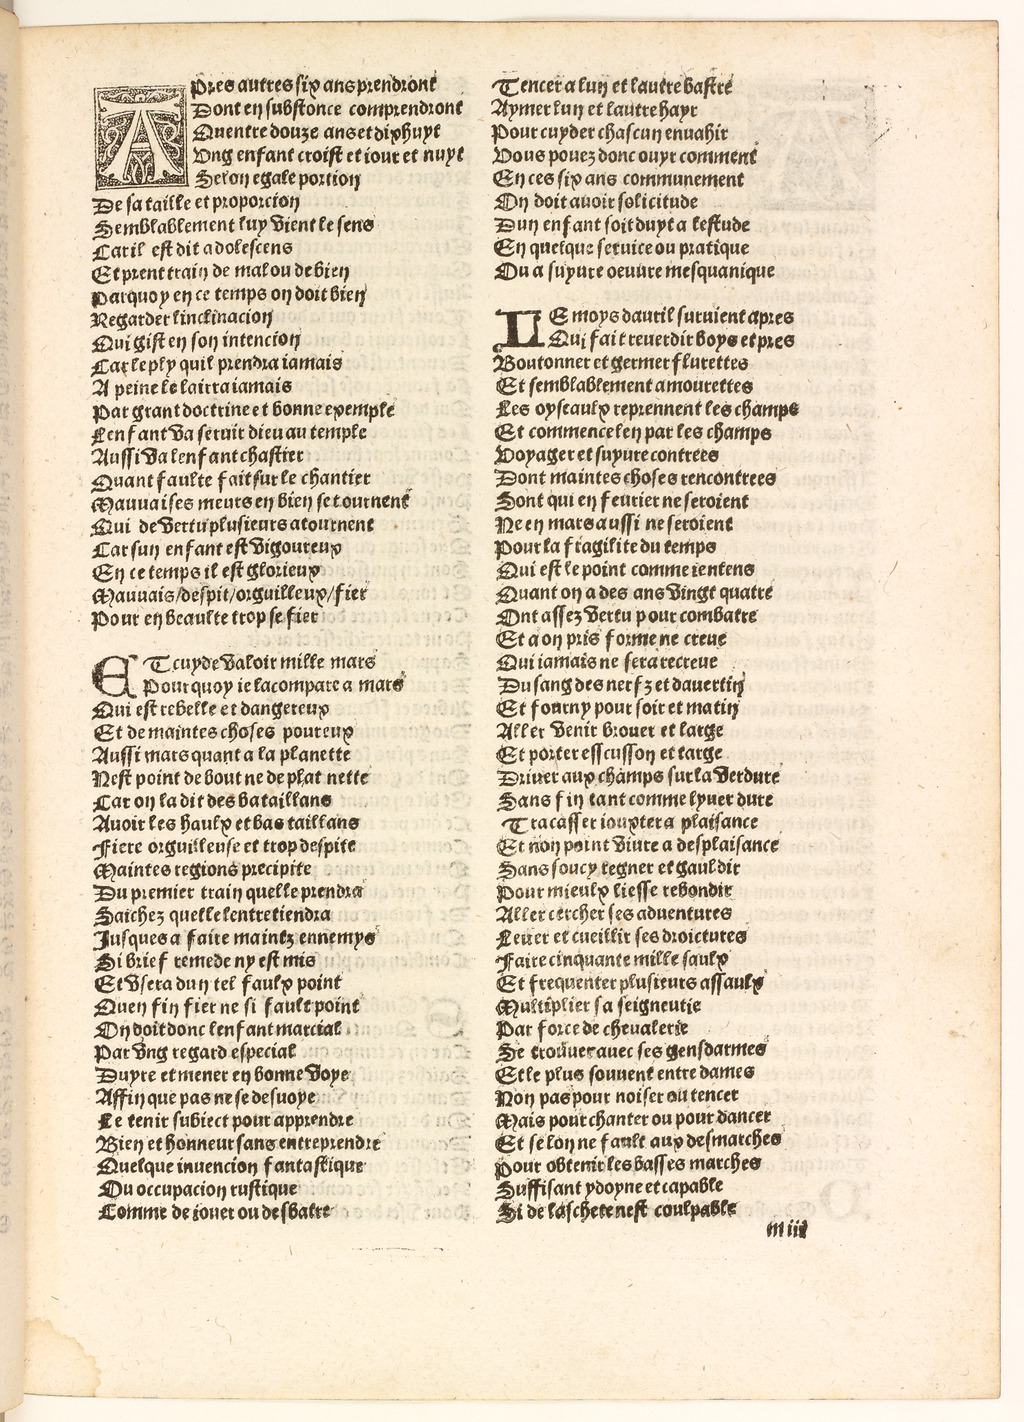 APres autres six ans prendront
Dont en substonce comprendront
Quentre douze ans et dixhuyt
Ung enfant croist et iour et nuyt
Selon egale portion
De sa taille et proporcion
Semblablement luy vient le sens
Car il est dit adolescens
Et prent train de mal ou de bien
Parquoy en ce temps on doit bien
Regarder linclinacion
Qui gist en son intencion
Car le ply quil prendra iamais
A peine le lairra iamais
Par grant doctrine et bonne exemple
Lenfant va seruir dieu au temple
Aussi va lenfant chastier
Quant faulte fait sur le chantier
Mauuaises meurs en bien se tournent
Qui de vertu plusieurs atournent
Car sun enfant est vigoureux
En ce temps il est glorieux
Mauuais/despit/orguilleux/fier
Pour en beaulte trop se fier
ET cuyde valoir mille mars
Pourquoy ie lacompare a mars
Qui est rebelle et dangereux
Et de maintes choses poureux
Aussi mars quant a la planette
Nest point de bout ne de plat nette
Car on la dit des bataillans
Auoir les haulx et bas taillans
Fiere orguilleuse et trop despite
Maintes regions precipite
Du premier train quelle prendra
Saichez quelle lentretiendra
Jusques a faire maintz ennemys
Si brief remede ny est mis
Et vsera dun tel faulx point
Quen fin fier ne si fault point
On doit donc lenfant marcial
Par vng regard especial
Duyre et mener en bonne voye
Affin que pas ne se desuoye
Le tenir subiect pour apprendre
Bien et honneur sans entreprendre
Quelque inuencion fantastique
Ou occupacion rustique
Comme de iouer ou desbatre
Tencer a lun et lautre bastre
Aymer lun et lautre hayr
Pour cuyder chascun enuahir
Vous pouez donc ouyr comment
En ces six ans communement
On doit auoir solicitude
Dun enfant soit duyt a lestude
En quelque seruice ou pratique
Ou a suyure oeuure mesquanique
LE moys dauril suruient apres
Qui fait reuerdir boys et pres
Boutonner et germer flurettes
Et semblablement amourettes
Les oyseaulx reprennent les champs
Et commence len par les champs
Voyager et suyure contrees
Dont maintes choses rencontrees
Sont qui en feurier ne seroient
Ne en mars aussi ne seroient
Pour la fragilite du temps
Qui est le point comme ientens
Quant on a des ans vingt quatre
Ont assez vertu pour combatre
Et a on pris forme ne creue
Qui iamais ne sera recreue
Du sang des nerfz et dauertin
Et fourny pour soir et matin
Aller venir brouer et large
Et porter esscusson et targe
Driuer aux champs sur la verdure
Sans fin tant comme lyuer dure
Tracasser iouxter a plaisance
Et non point viure a desplaisance
Sans soucy regner et gauldir
Pour mieulx liesse rebondir
Aller cercher ses aduentures
Leuer et cueillir ses droictures
Faire cinquante mille saulx
Et frequenter plusieurs assaulx
Multiplier sa seigneurie
Par force de cheualerie
Se trouuer auec ses gensdarmes
Et le plus souuent entre dames
Non pas pour noiser ou tencer
Mais pour chanter ou pour dancer
Et se lon ne fault aux desmarches
Pour obtenir les basses marches
Suffisant ydoyne et capable
Si de laschete nest coulpable
m iii